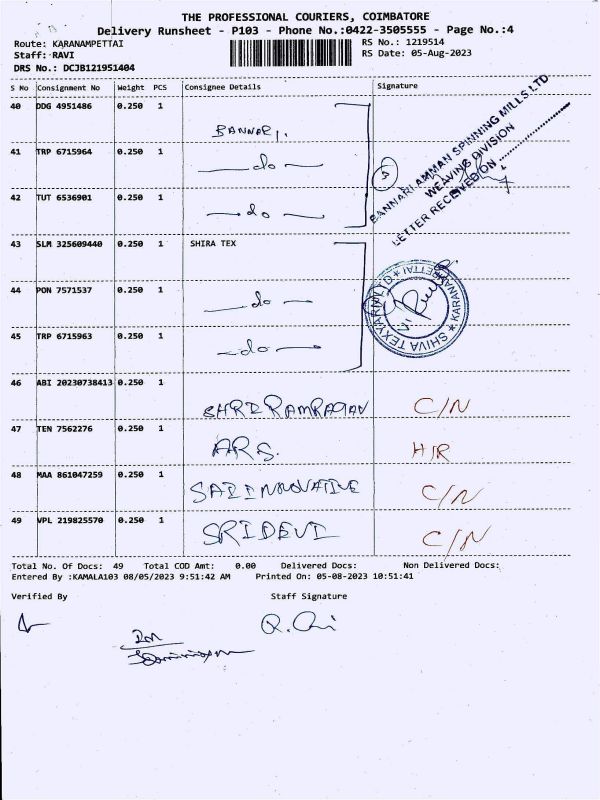 THE PROFESSIONAL COURIERS, COIMBATORE
Delivery Runsheet - P103 - Phone No.:0422-3505555 - Page No.:4
Route: KARANAMPETTAI
RS No.: 1219514
Staff: RAVI
RS Date: 05-Aug-2023
DRS No.: DCJB121951404
S No Consignment No Weight PCS Consignee Details Signature
40 DDG 4951486 0.250 1 BANNARI.
41 TRP 6715964 0.250 1 —do—
42 TUT 6536901 0.250 1 —do—
BANNARI AMMAN SPINNING MILLS LTD
WEAVING DIVISION
LETTER RECEIVED ON
43 SLM 325609440 0.250 1 SHIRA TEX
44 PON 7571537 0.250 1 —do—
45 TRP 6715963 0.250 1 —do—
SHIVA TEXYARN LTD * KARANAMPETTAI *
46 ABI 20230738413 0.250 1 SHRI RAMRAGAV C/N
47 TEN 7562276 0.250 1 ARS. H/R
48 MAA 861047259 0.250 1 SAI INNOVATIVE C/N
49 VPL 219825570 0.250 1 SRI DEVI C/N
Total No. Of Docs: 49 Total COD Amt: 0.00 Delivered Docs: Non Delivered Docs:
Entered By :KAMALA103 08/05/2023 9:51:42 AM Printed On: 05-08-2023 10:51:41
Verified By Staff Signature